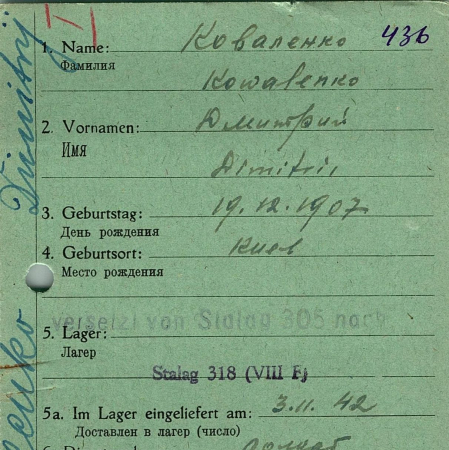 436
1. Name: Коваленко
Фамилия
Kowalenko
2. Vornamen: Дмитрий
Имя
Dimitrii
3. Geburtstag: 19.12.1907
День рождения
4. Geburtsort: Киев
Место рождения
versetzt von Stalag 305 nach
5. Lager:
Лагерь
Stalag 318 (VIII F)
5a. Im Lager eingeliefert am: 3.11.42
Доставлен в лагерь (число)
Dimitrij